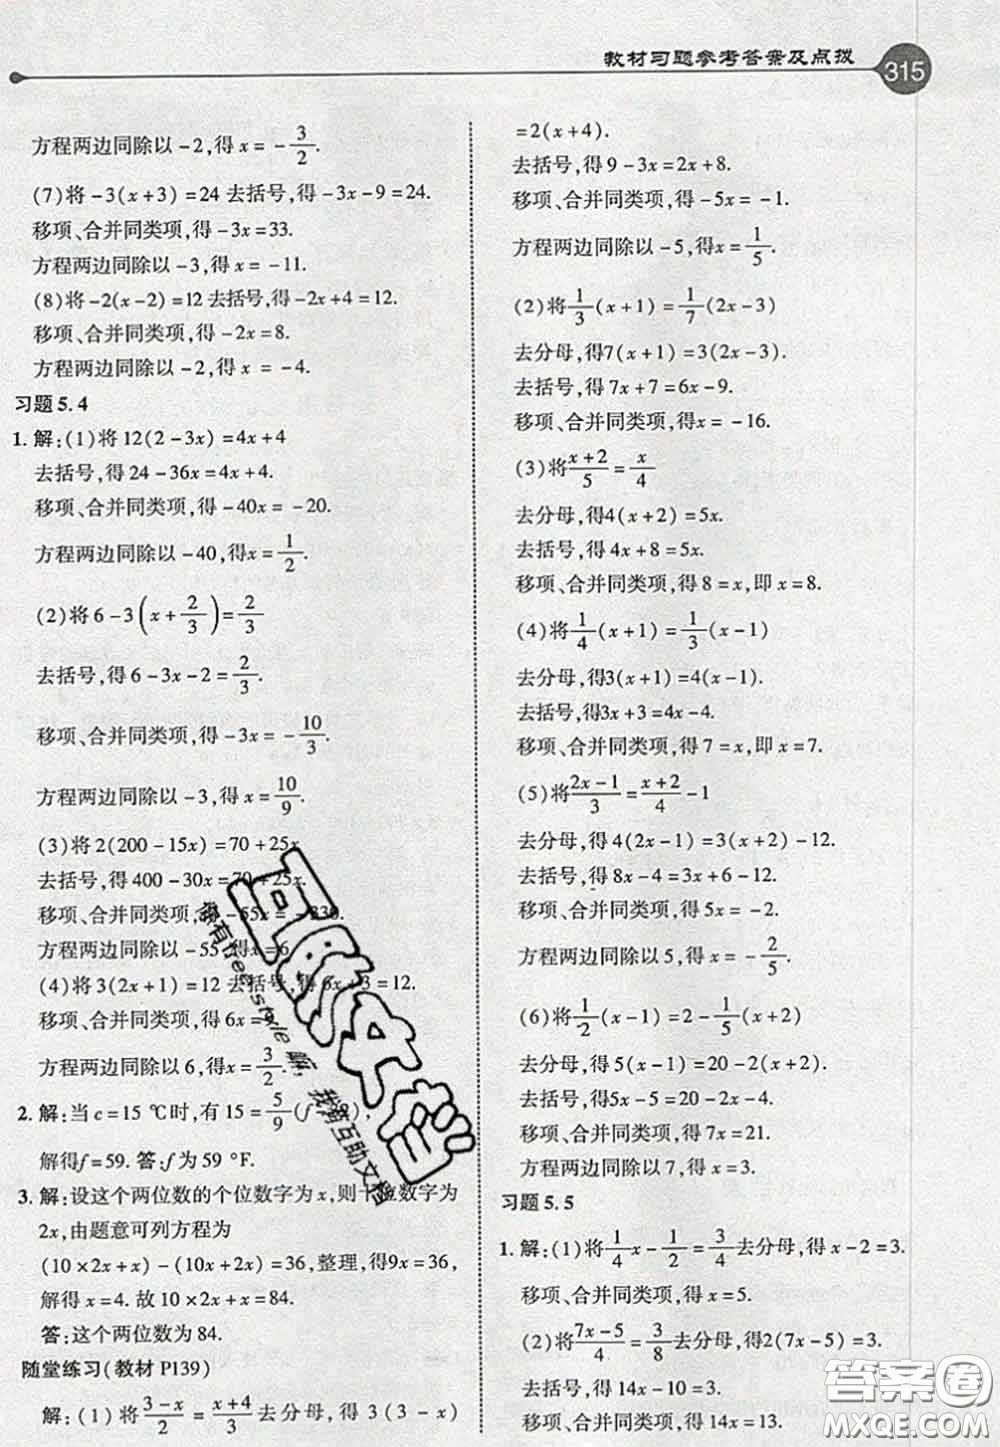 教材习题参考答案及点拨 315
方程两边同除以 -2,得 x = -3/2.
(7)将 -3(x+3)=24 去括号,得 -3x-9=24.
移项、合并同类项,得 -3x=33.
方程两边同除以 -3,得 x = -11.
(8)将 -2(x-2)=12 去括号,得 -2x+4=12.
移项、合并同类项,得 -2x=8.
方程两边同除以 -2,得 x = -4.
习题 5.4
1. 解:(1)将 12(2-3x)=4x+4
去括号,得 24-36x=4x+4.
移项、合并同类项,得 -40x= -20.
方程两边同除以 -40,得 x=1/2.
(2)将 6-3(x+2/3)=2/3
去括号,得 6-3x-2=2/3.
移项、合并同类项,得 -3x= -10/3.
方程两边同除以 -3,得 x=10/9.
(3)将 2(200-15x)=70+25x
去括号,得 400-30x=70+25x.
移项、合并同类项,得 -55x= -330.
方程两边同除以 -55,得 x=6
(4)将 3(2x+1)=12 去括号,得 6x+3=12.
移项、合并同类项,得 6x=
方程两边同除以 6,得 x=3/2.
2. 解:当 c=15 ℃时,有 15=5/9(f
解得 f=59. 答:f 为 59 °F.
3. 解:设这个两位数的个位数字为 x,则十位数字为
2x,由题意可列方程为
(10×2x+x)-(10x+2x)=36,整理,得9x=36,
解得 x=4. 故 10×2x+x=84.
答:这个两位数为 84.
随堂练习(教材 P139)
解:(1)将 (3-x)/2 = (x+4)/3 去分母,得 3(3-x)
=2(x+4).
去括号,得 9-3x=2x+8.
移项、合并同类项,得 -5x= -1.
方程两边同除以 -5,得x=1/5.
(2)将 1/3(x+1)=1/7(2x-3)
去分母,得7(x+1)=3(2x-3).
去括号,得 7x+7=6x-9.
移项、合并同类项,得 x= -16.
(3)将 (x+2)/5 = x/4
去分母,得4(x+2)=5x.
去括号,得 4x+8=5x.
移项、合并同类项,得 8=x,即 x=8.
(4)将 1/4(x+1)=1/3(x-1)
去分母,得3(x+1)=4(x-1).
去括号,得3x+3=4x-4.
移项、合并同类项,得 7=x,即 x=7.
(5)将 (2x-1)/3 = (x+2)/4 -1
去分母,得 4(2x-1)=3(x+2)-12.
去括号,得 8x-4=3x+6-12.
移项、合并同类项,得 5x= -2.
方程两边同除以 5,得 x= -2/5.
(6)将 1/2(x-1)=2-1/5(x+2)
去分母,得 5(x-1)=20-2(x+2).
去括号,得 5x-5=20-2x-4.
移项、合并同类项,得 7x=21.
方程两边同除以 7,得 x=3.
习题 5.5
1. 解:(1)将 1/4 x-1/2=3/4 去分母,得 x-2=3.
移项、合并同类项,得 x=5.
(2)将 (7x-5)/4=3/8 去分母,得2(7x-5)=3.
去括号,得 14x-10=3.
移项、合并同类项,得 14x=13.
答案圈
MXQE.COM